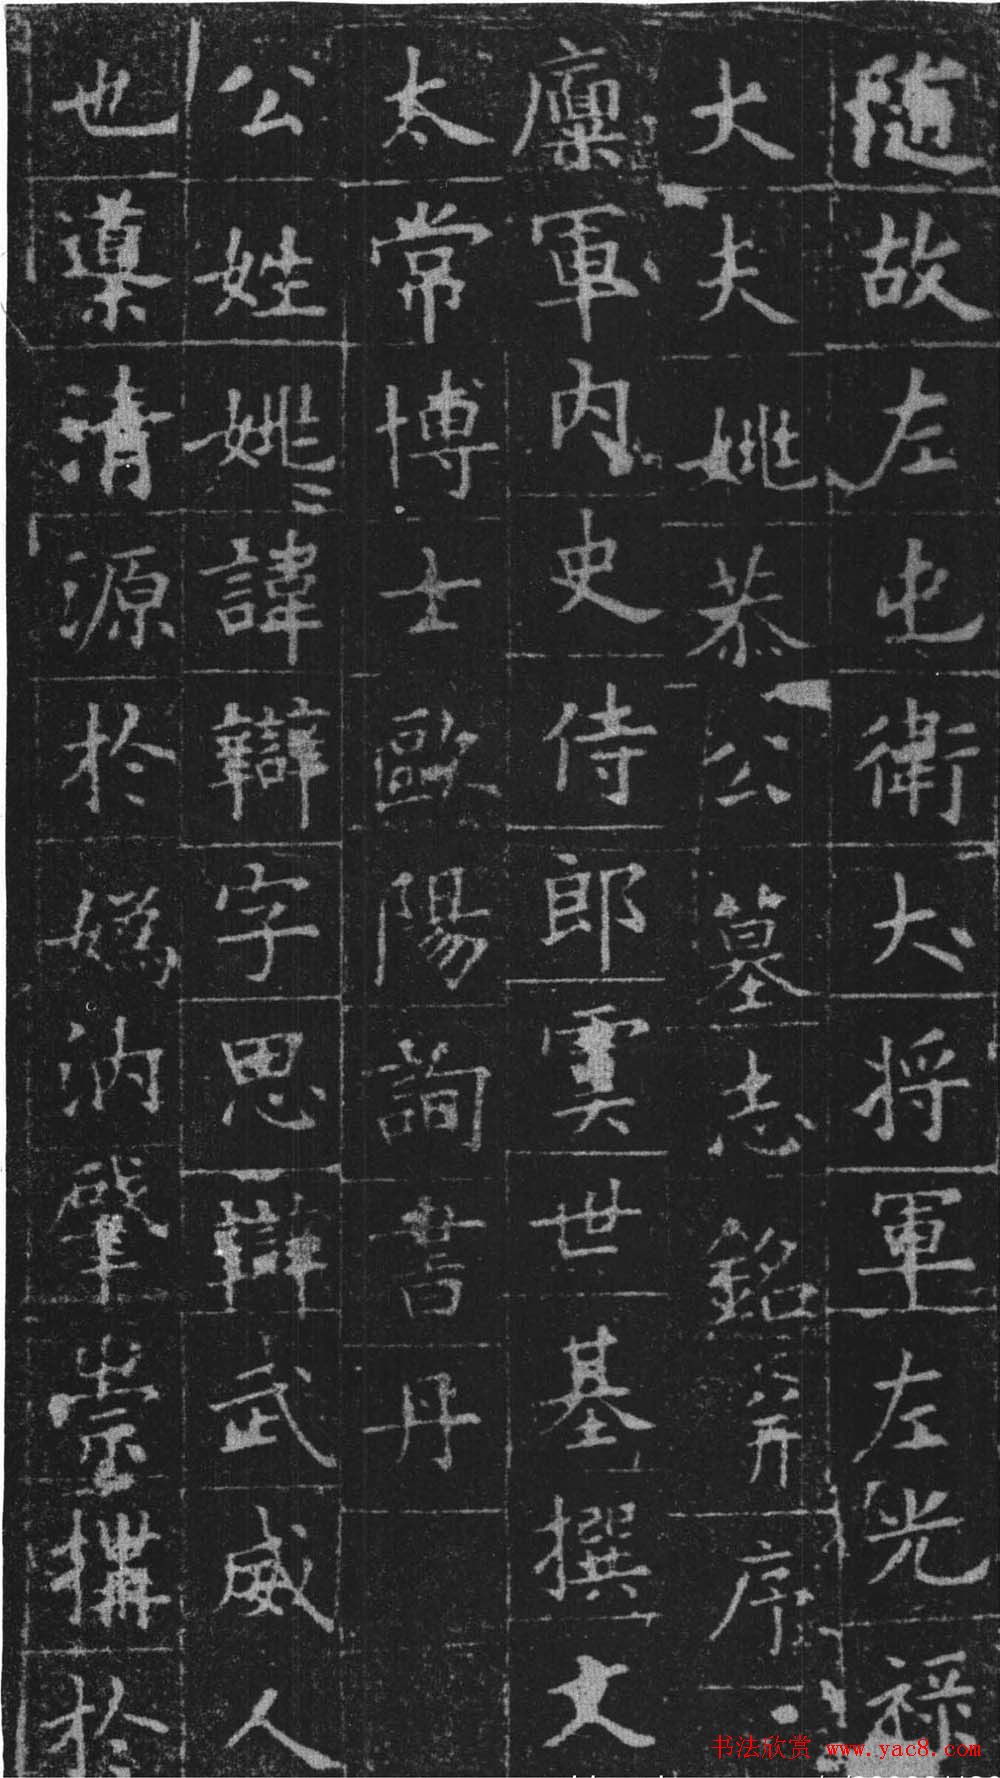 随故左屯衛大将軍左光祿
大夫姚恭公墓志銘并序
内史侍郎虞世基撰文
太常博士歐陽詢書丹
公姓姚諱辯字思辯武威人
也導清源於媯汭肇崇構於
书法欣赏 www.yac8.com